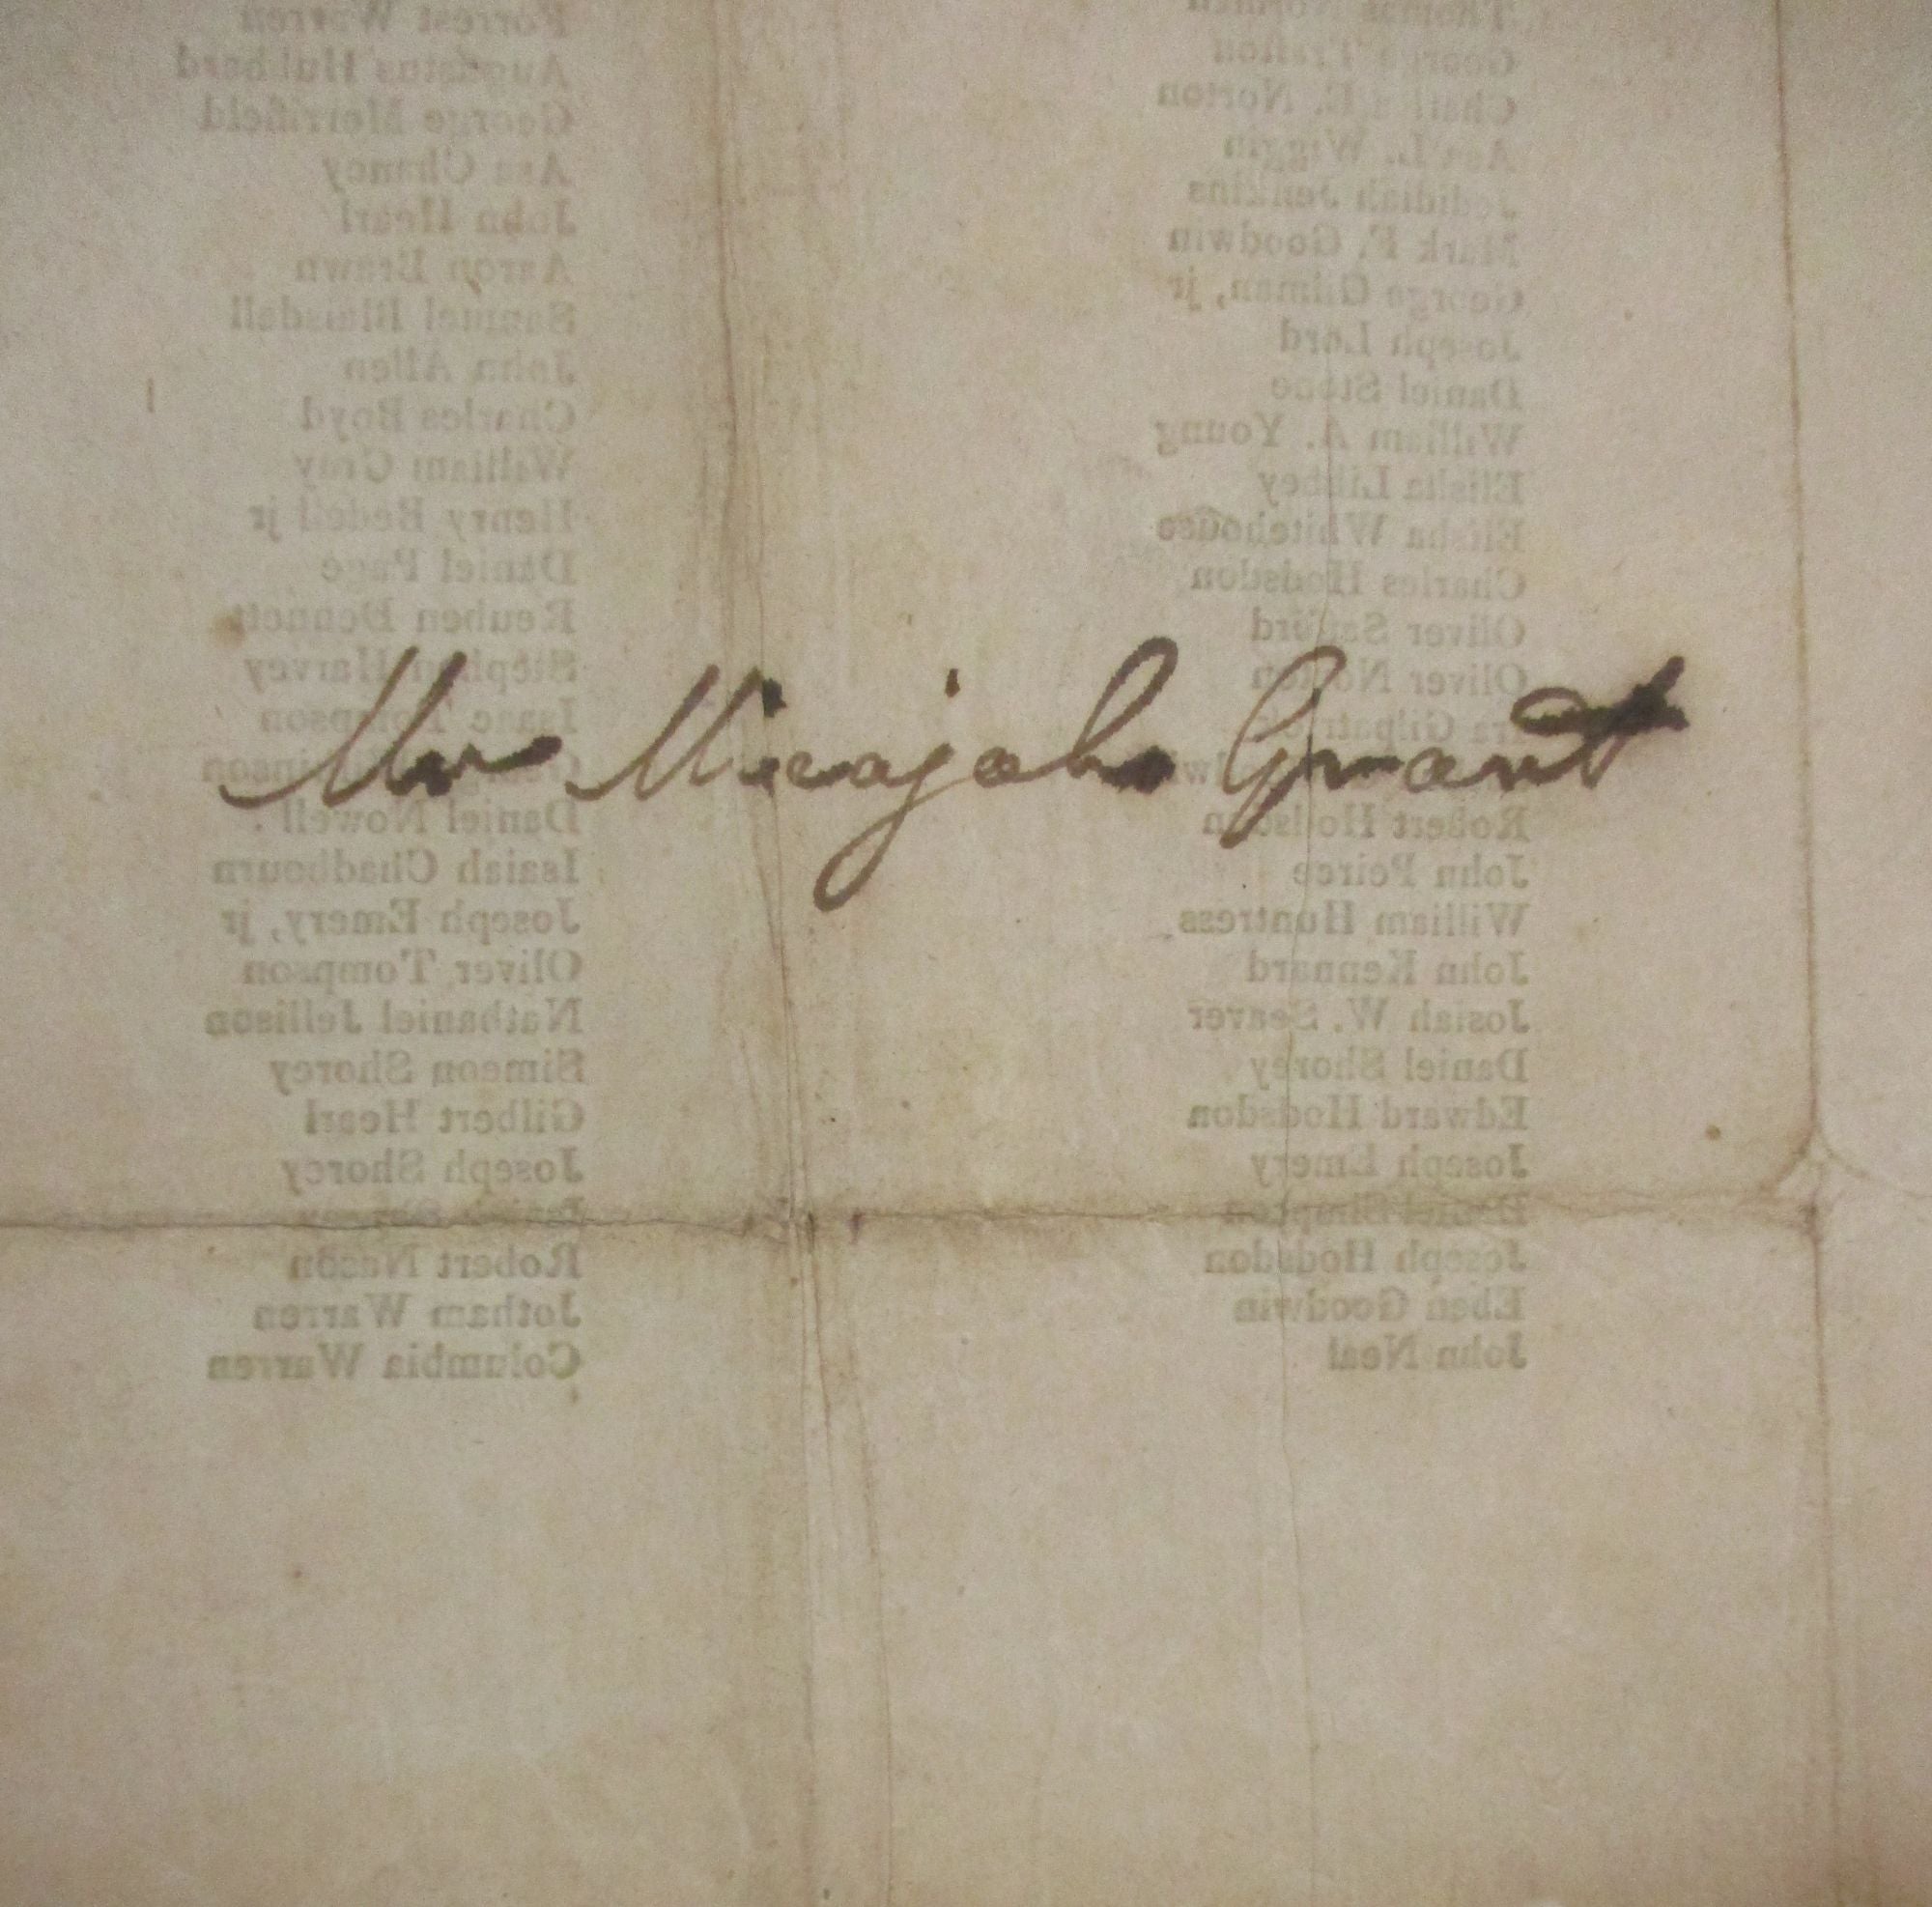 Forrest Warren
Augustus Hubbard
George Merrifield
Asa Chaney
John Hearl
Aaron Brawn
Samuel Blaisdell
John Allen
Charles Boyd
William Gray
Henry Bedell jr
Daniel Page
Reuben Bennett
Stephen Harvey
Isaac Tompson
Daniel Nowell
Isaiah Chadbourn
Joseph Emery, jr
Oliver Tompson
Nathaniel Jellison
Simeon Shorey
Gilbert Hearl
Joseph Shorey
Robert Nason
Jotham Warren
Columbia Warren
Thomas
George Trafton
Charles E. Norton
Asa L. Wiggin
Jedidiah Jenkins
Mark F. Goodwin
George Gilman, jr
Joseph Lord
Daniel Stone
William A. Young
Elisha Libbey
Elisha Whitehouse
Charles Hodsdon
Oliver Sanford
Oliver Norton
Robert Hodsdon
John Peirce
William Huntress
John Kennard
Josiah W. Seaver
Daniel Shorey
Edward Hodsdon
Joseph Emery
Daniel Simpson
Joseph Hodsdon
Eben Goodwin
John Neal
Mr Micajah Grant